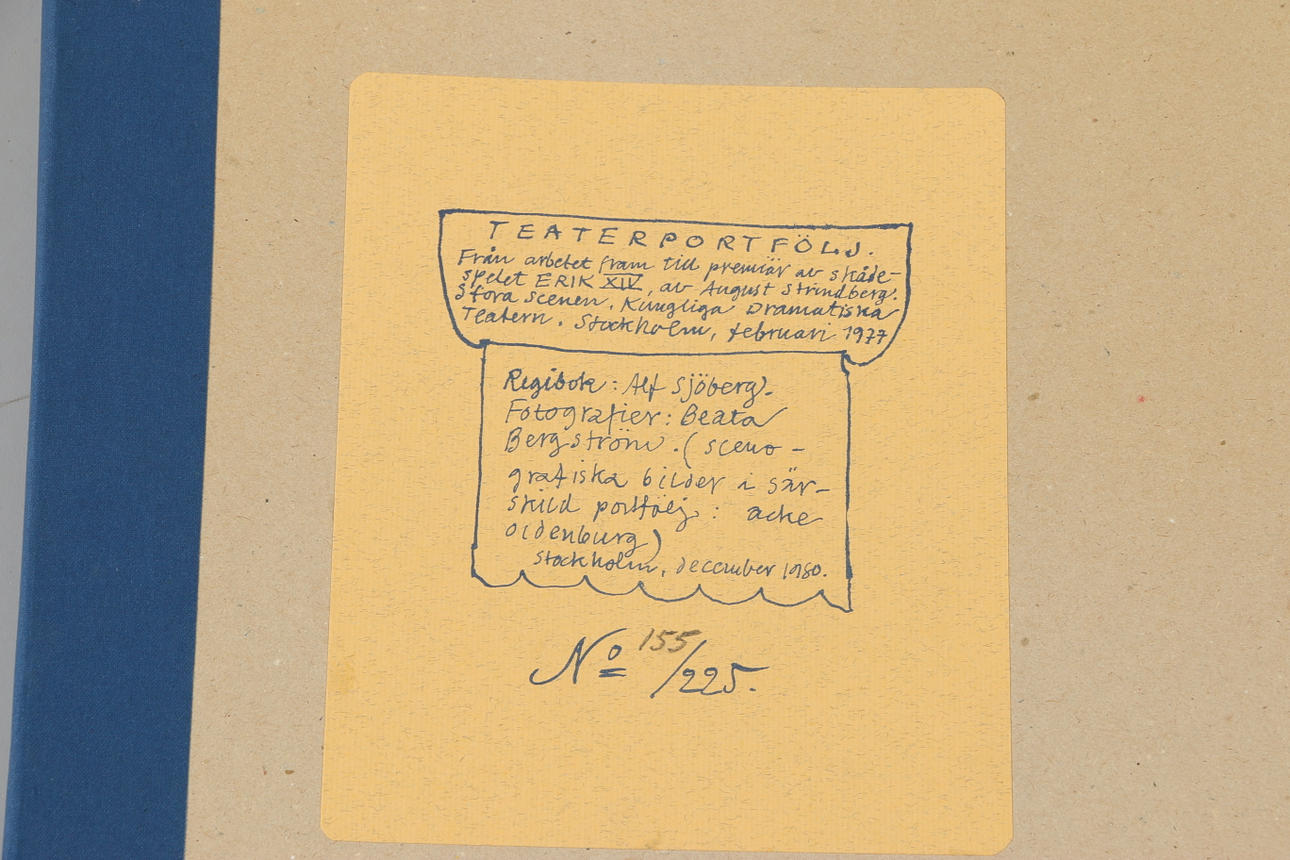 TEATERPORTFÖLJ.
Från arbetet fram till premiär av skåde-
spelet ERIK XIV, av August Strindberg.
Stora scenen. Kungliga Dramatiska
Teatern. Stockholm, februari 1977
Regibok: Alf Sjöberg.
Fotografier: Beata
Bergström. (sceno-
grafiska bilder i sär-
skild portfölj: acke
oldenburg)
Stockholm, december 1980.
Nº 155/225.